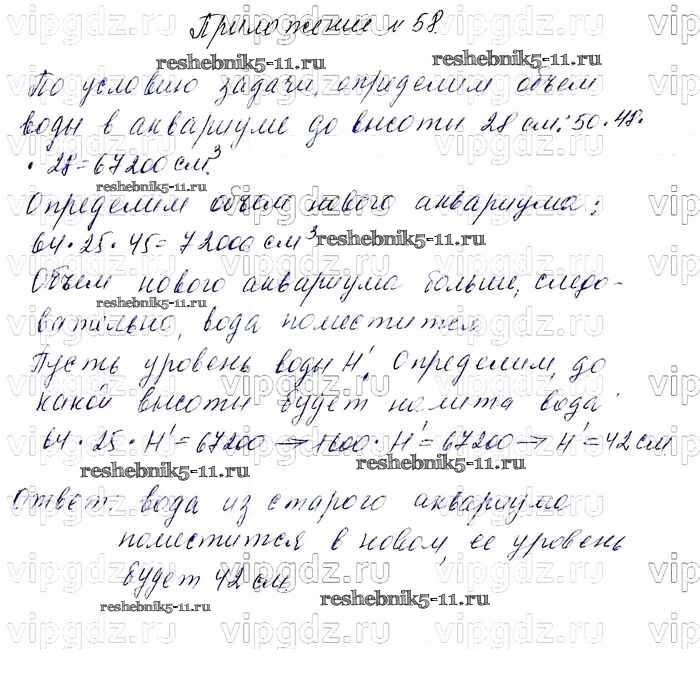 Приложение № 58.
По условию задачи, определим объем
воды в аквариуме до высоты 28 см: 50·48·
·28=67200 см³.
Определим объем нового аквариума:
64·25·45=72000 см³
Объем нового аквариума больше, следо-
вательно, вода поместится
Пусть уровень воды H'. Определим, до
какой высоты будет налита вода:
64·25·H'=67200→1600·H'=67200→H'=42 см
Ответ: вода из старого аквариума
поместится в новом, ее уровень
будет 42 см.
reshebnik5-11.ru
reshebnik5-11.ru
reshebnik5-11.ru
reshebnik5-11.ru
reshebnik5-11.ru
reshebnik5-11.ru
reshebnik5-11.ru
reshebnik5-11.ru
reshebnik5-11.ru
vipgdz.ru